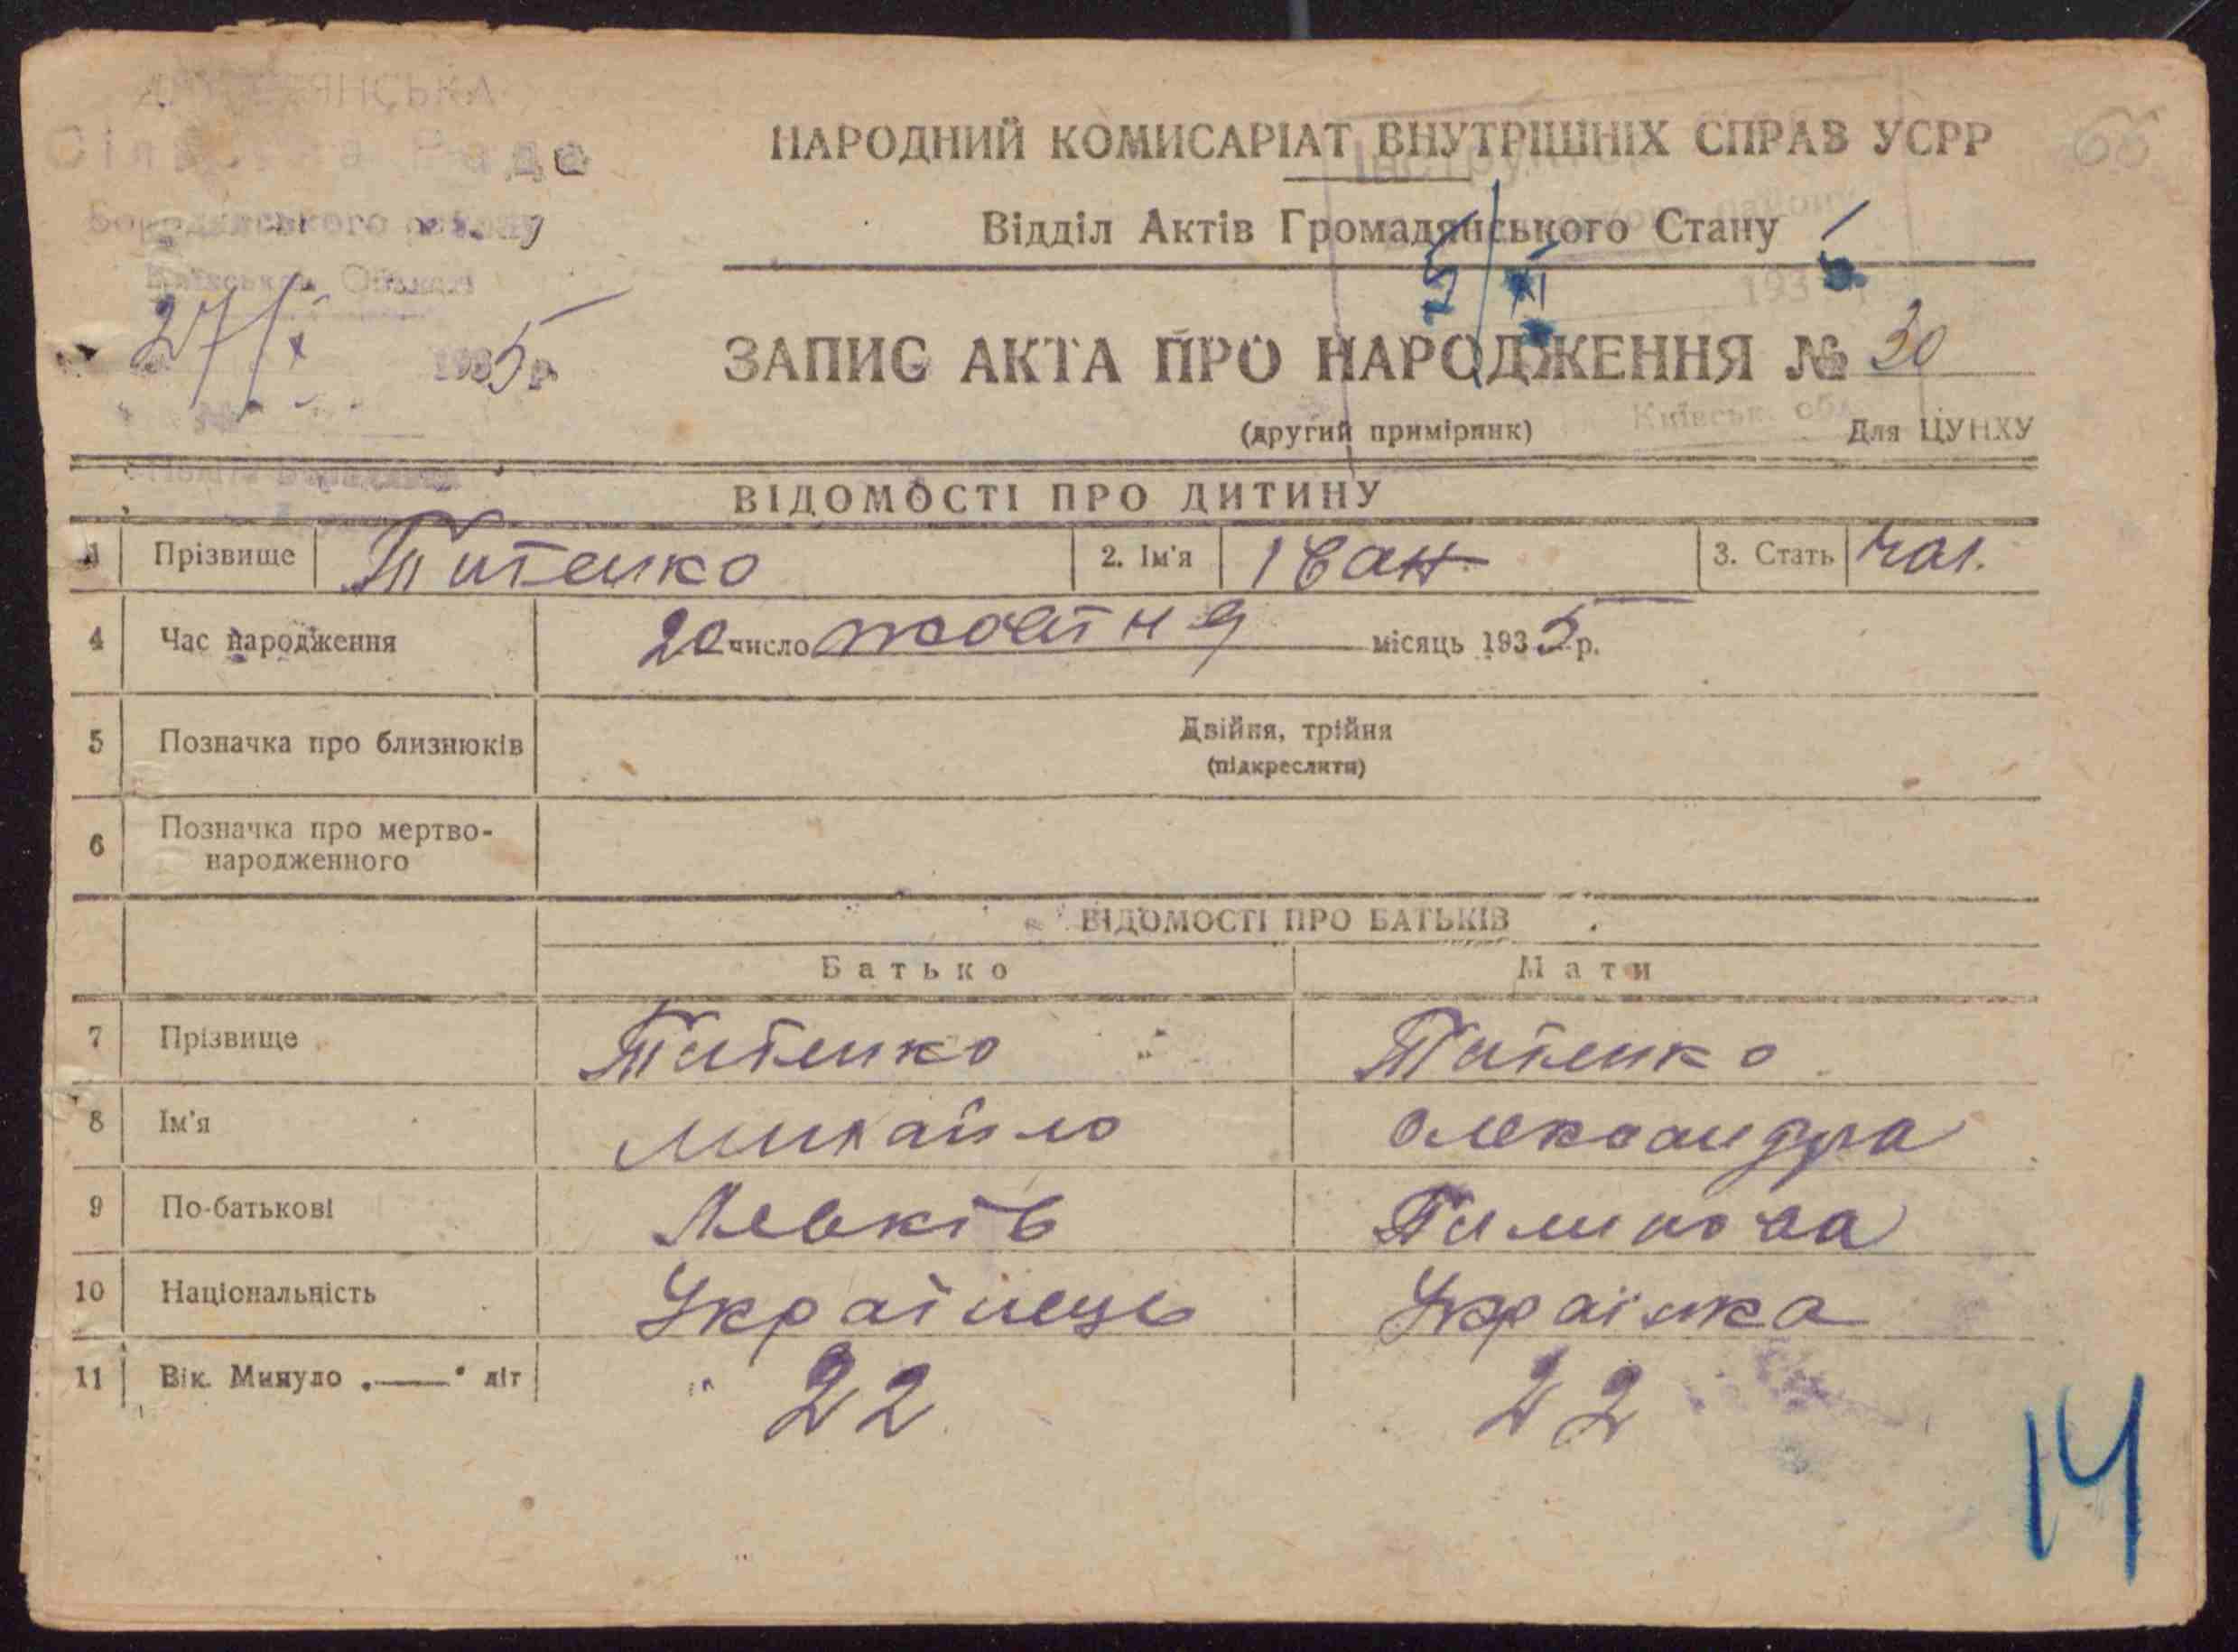 Сільська Рада
Бородянського району
Київської Області
27/X 1935 р.
66
НАРОДНИЙ КОМИСАРІАТ ВНУТРІШНІХ СПРАВ УСРР
Відділ Актів Громадянського Стану
ЗАПИС АКТА ПРО НАРОДЖЕННЯ № 30
(другий примірник)
Київськ. обл.
Для ЦУНХУ
ВІДОМОСТІ ПРО ДИТИНУ
1 Прізвище Титенко 2. Ім'я Іван 3. Стать чол.
4 Час народження 20 число жовтня місяць 1935 р.
5 Позначка про близнюків Двійня, трійня
(підкреслити)
6 Позначка про мертво-
народженного
ВІДОМОСТІ ПРО БАТЬКІВ
Батько Мати
7 Прізвище Титенко Титенко
8 Ім'я Михайло Олександра
9 По-батькові Левків Пилипова
10 Національність Українець Українка
11 Вік. Минуло „—“ літ 22 22
14